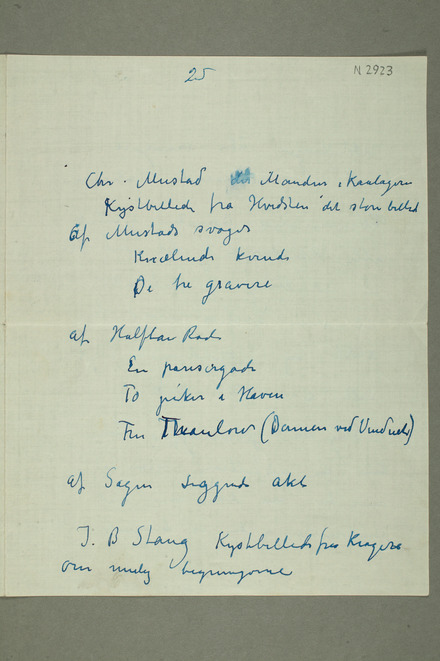 25
N 2923
Chr. Mustad Manden i Kaalageren
Kystbillede fra Hvidsten det store billed
Af Mustads svoger
Knælende kvinde
De tre gravere
af Halfdan Rode
En parisergade
To piker i Haven
Fru Thaulow (Damen ved Vinduet)
af Sagen siggende akt
J. B Stang Kystbillede fra Kragerø
om mulig bygningerne